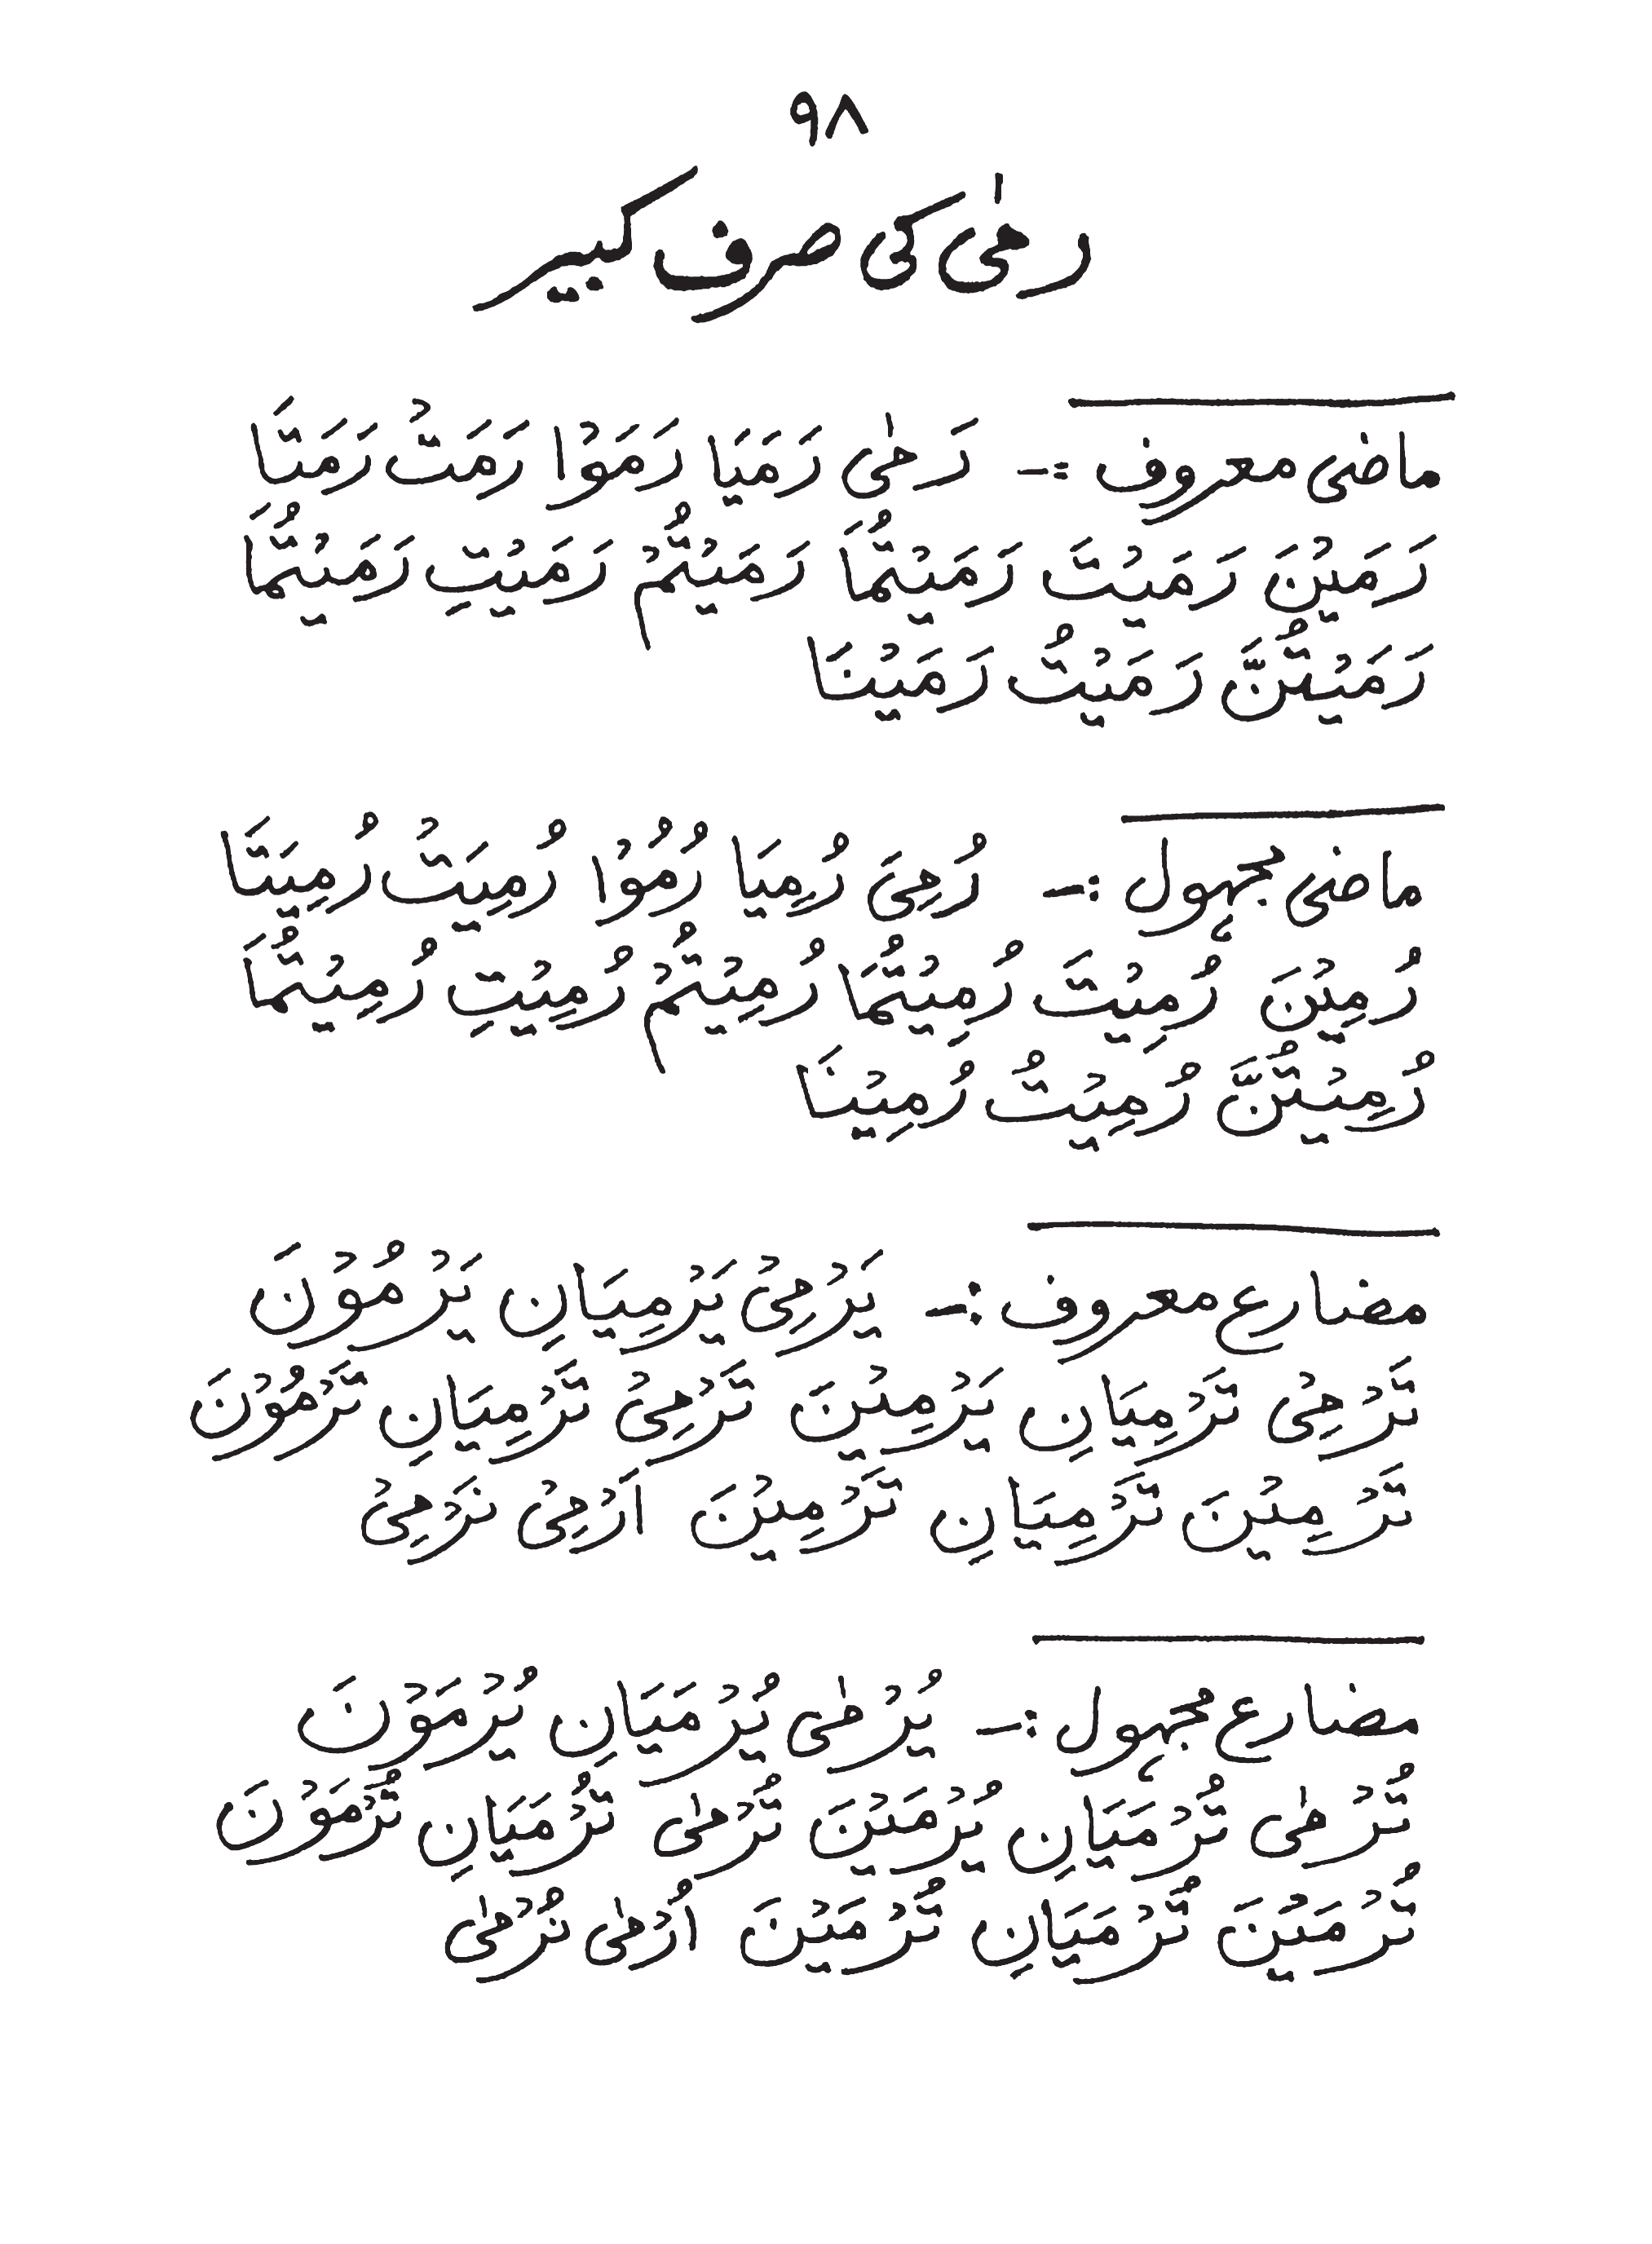 ۹۸
رمٰی کی صرف کبیر
ماضی معروف :- رَمٰی رَمَیَا رَمَوْا رَمَتْ رَمَتَا
رَمَیْنَ رَمَیْتَ رَمَیْتُمَا رَمَیْتُمْ رَمَیْتِ رَمَیْتُمَا
رَمَیْتُنَّ رَمَیْتُ رَمَیْنَا
ماضی مجہول :- رُمِیَ رُمِیَا رُمُوْا رُمِیَتْ رُمِیَتَا
رُمِیْنَ رُمِیْتَ رُمِیْتُمَا رُمِیْتُمْ رُمِیْتِ رُمِیْتُمَا
رُمِیْتُنَّ رُمِیْتُ رُمِیْنَا
مضارع معروف :- یَرْمِیْ یَرْمِیَانِ یَرْمُوْنَ
تَرْمِیْ تَرْمِیَانِ یَرْمِیْنَ تَرْمِیْ تَرْمِیَانِ تَرْمُوْنَ
تَرْمِیْنَ تَرْمِیَانِ تَرْمِیْنَ اَرْمِیْ نَرْمِیْ
مضارع مجہول :- یُرْمٰی یُرْمَیَانِ یُرْمَوْنَ
تُرْمٰی تُرْمَیَانِ یُرْمَیْنَ تُرْمٰی تُرْمَیَانِ تُرْمَوْنَ
تُرْمَیْنَ تُرْمَیَانِ تُرْمَیْنَ اُرْمٰی نُرْمٰی